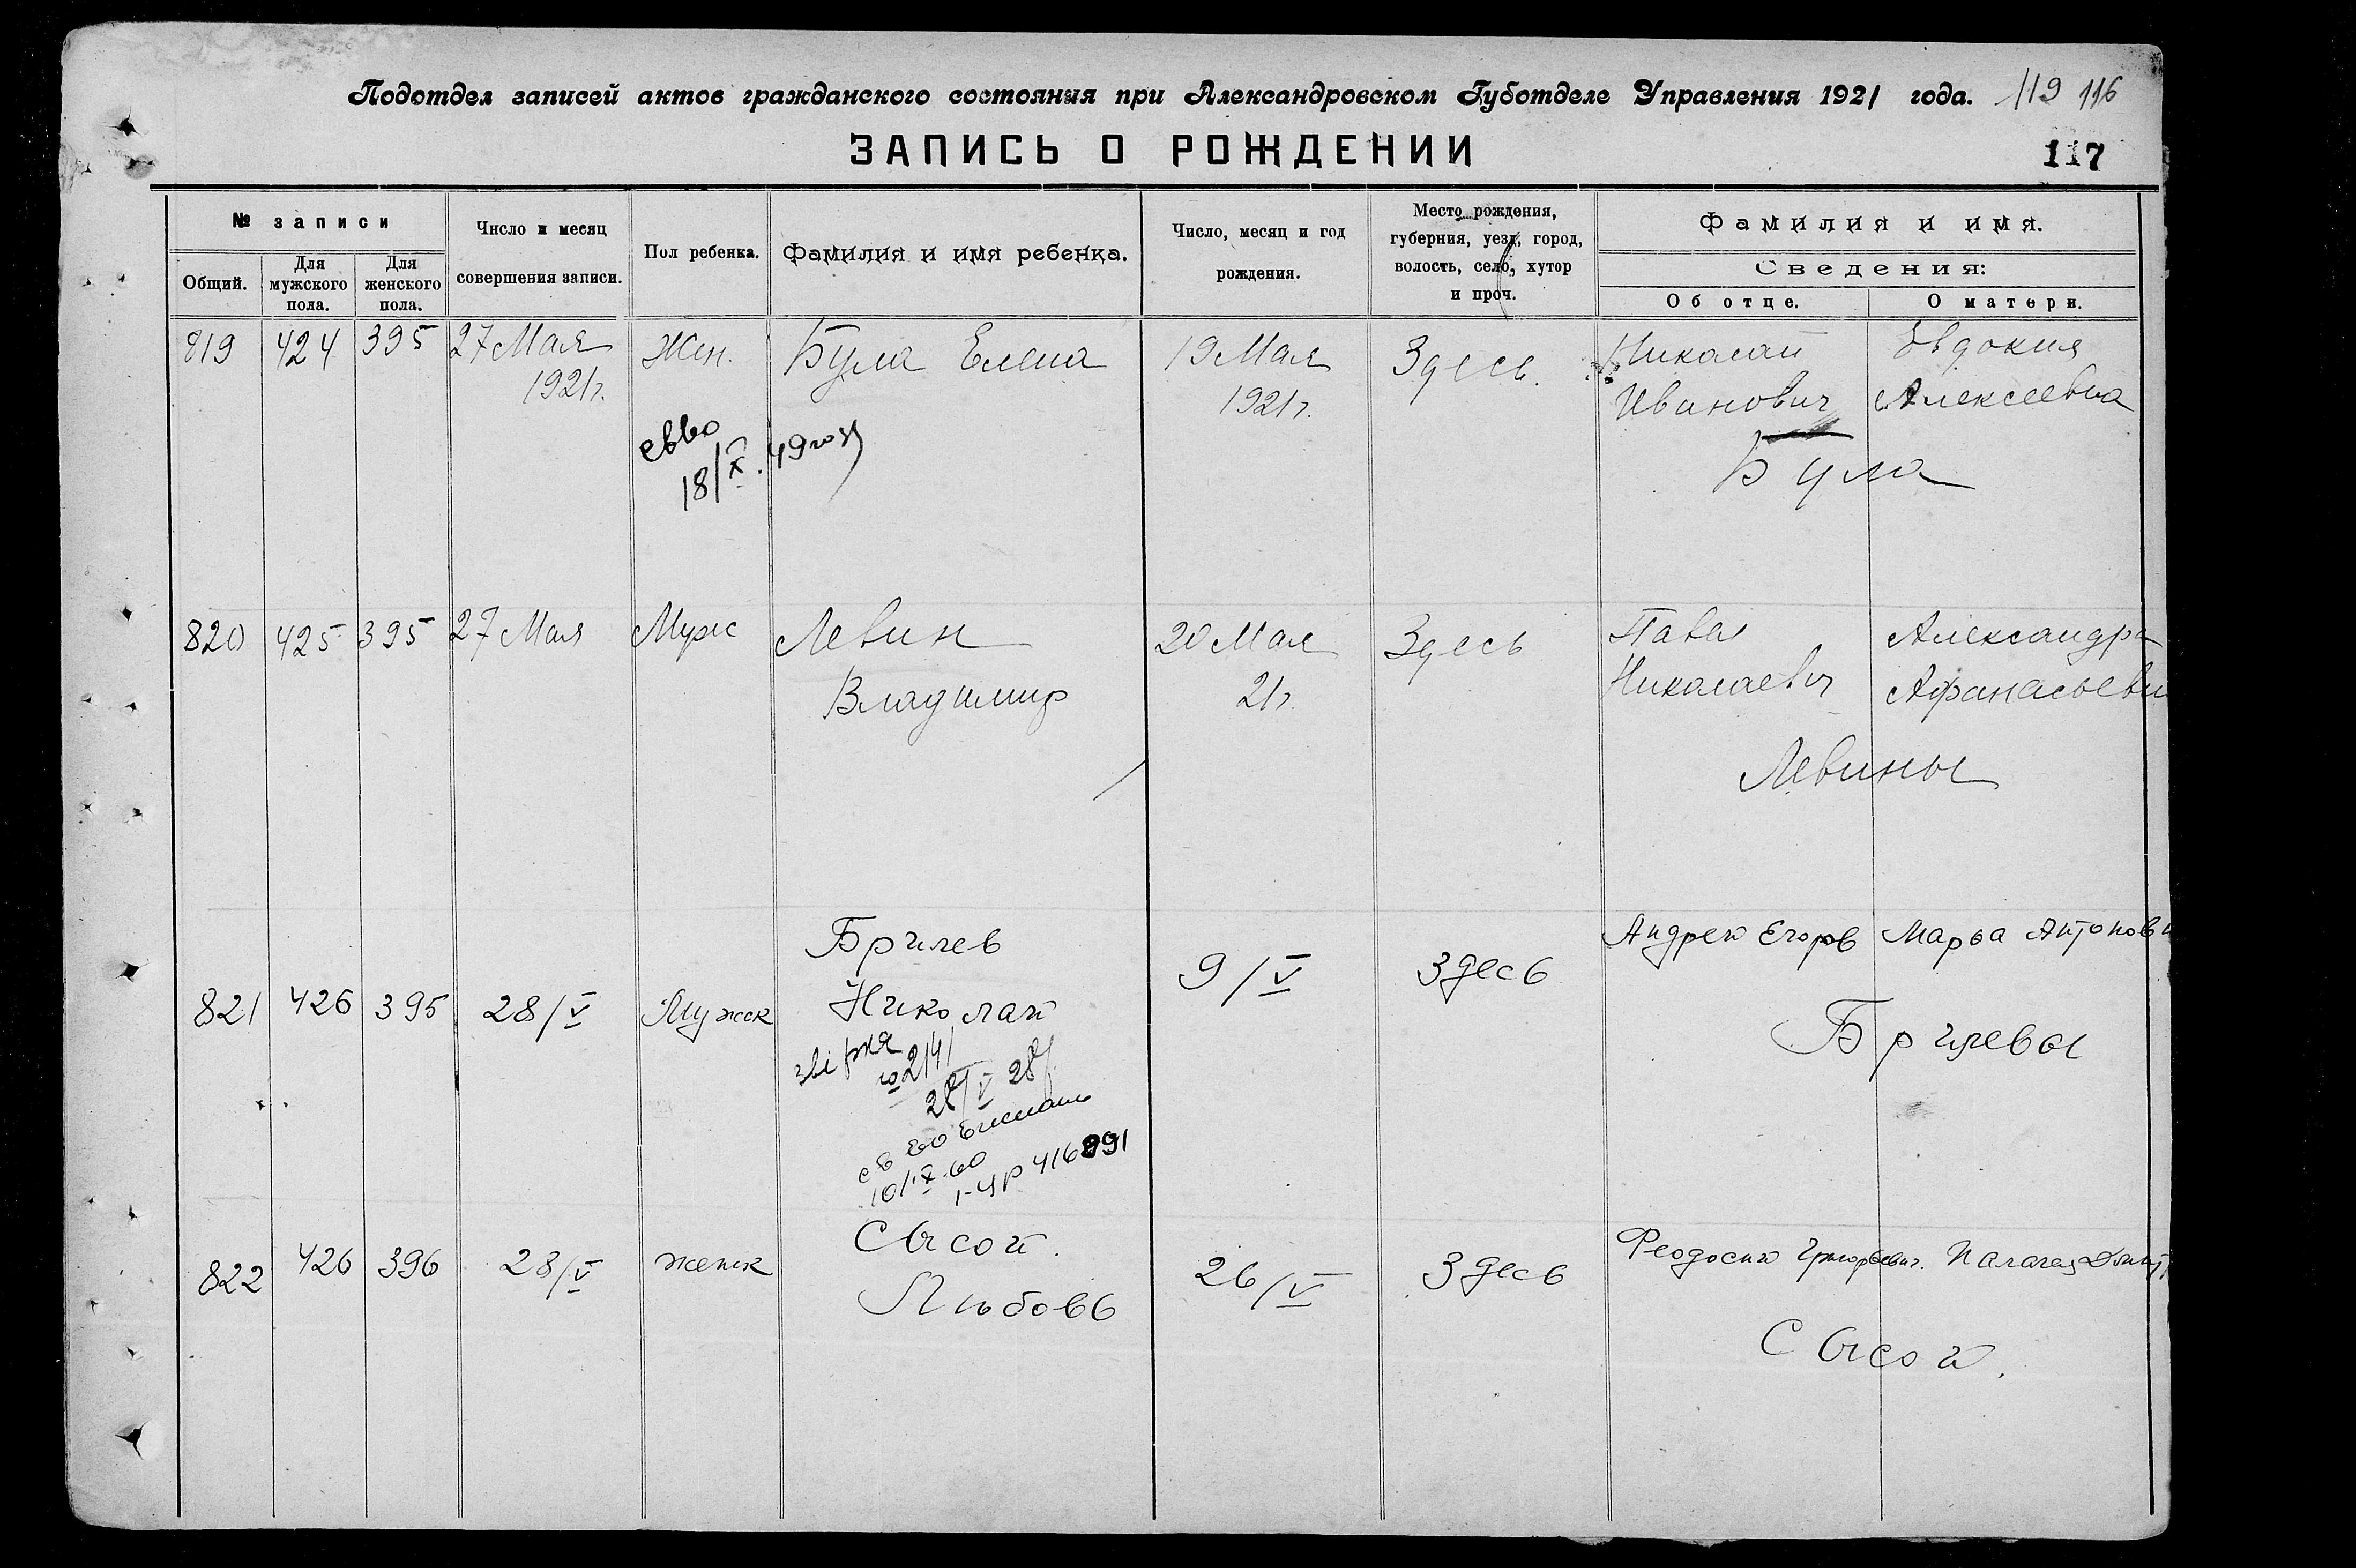 Подотдел записей актов гражданского состояния при Александровском Губотделе Управления 1921 года. 119 116
ЗАПИСЬ О РОЖДЕНИИ
117
№ записи
Общий.
Для мужского пола.
Для женского пола.
Число и месяц совершения записи.
Пол ребенка.
Фамилия и имя ребенка.
Число, месяц и год рождения.
Место рождения, губерния, уезд, город, волость, село, хутор и проч.
Фамилия и имя.
Сведения:
Об отце.
О матери.
819 424 395 27 Мая Жен. Була Елена 19 Мая Здесь. Николай Евдокия
1921г. 1921г. Иванович Алексеевна
18/X.49
Була
820 425 395 27 Мая Муж Левин 20 Мая Здесь Павел Александра
Владимир 21г. Николаевич Афанасьевн
Левины
Брилев Андрей Егоров Марья Антоновн
821 426 395 28/V Мужск Николай 9/V Здесь
Брилевы
звірка
№ 2141
28/V 28
10/IX.60
416891
822 426 396 28/V женск Сысой. 26/V Здесь Феодосий Григорьевич.
Любовь
Сысой.